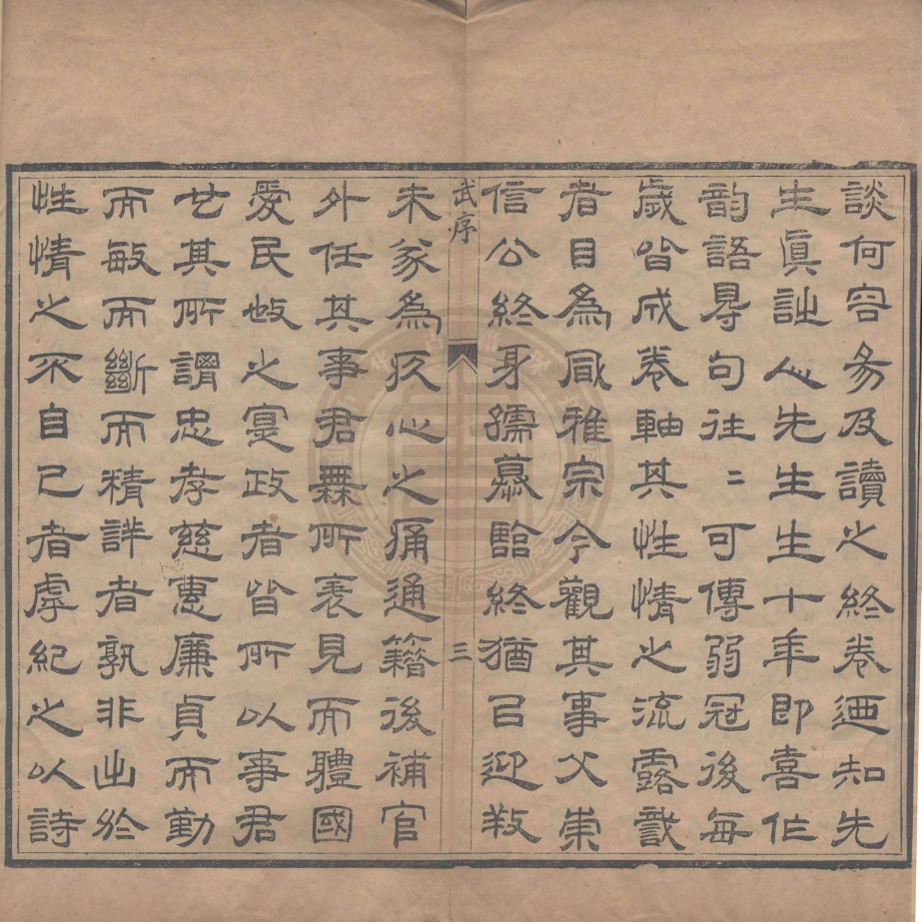 談何容易及讀之終卷迺知先
生眞詩人先生生十年即喜作
韵語㝵句往二可傳弱冠後每
歲皆成卷軸其性情之流露識
者目為風雅宗今觀其事父崇
信公終身孺慕臨終猶㠯迎𢼝
武序
三
未㒸為疚心之痛通籍後補官
外任其事君無所表見而體國
愛民𢻱之寔政者皆所以事君
也其所謂忠孝慈惠廉貞而勤
而敏而斷而精詳者孰非出於
性情之不自已者虖紀之以詩